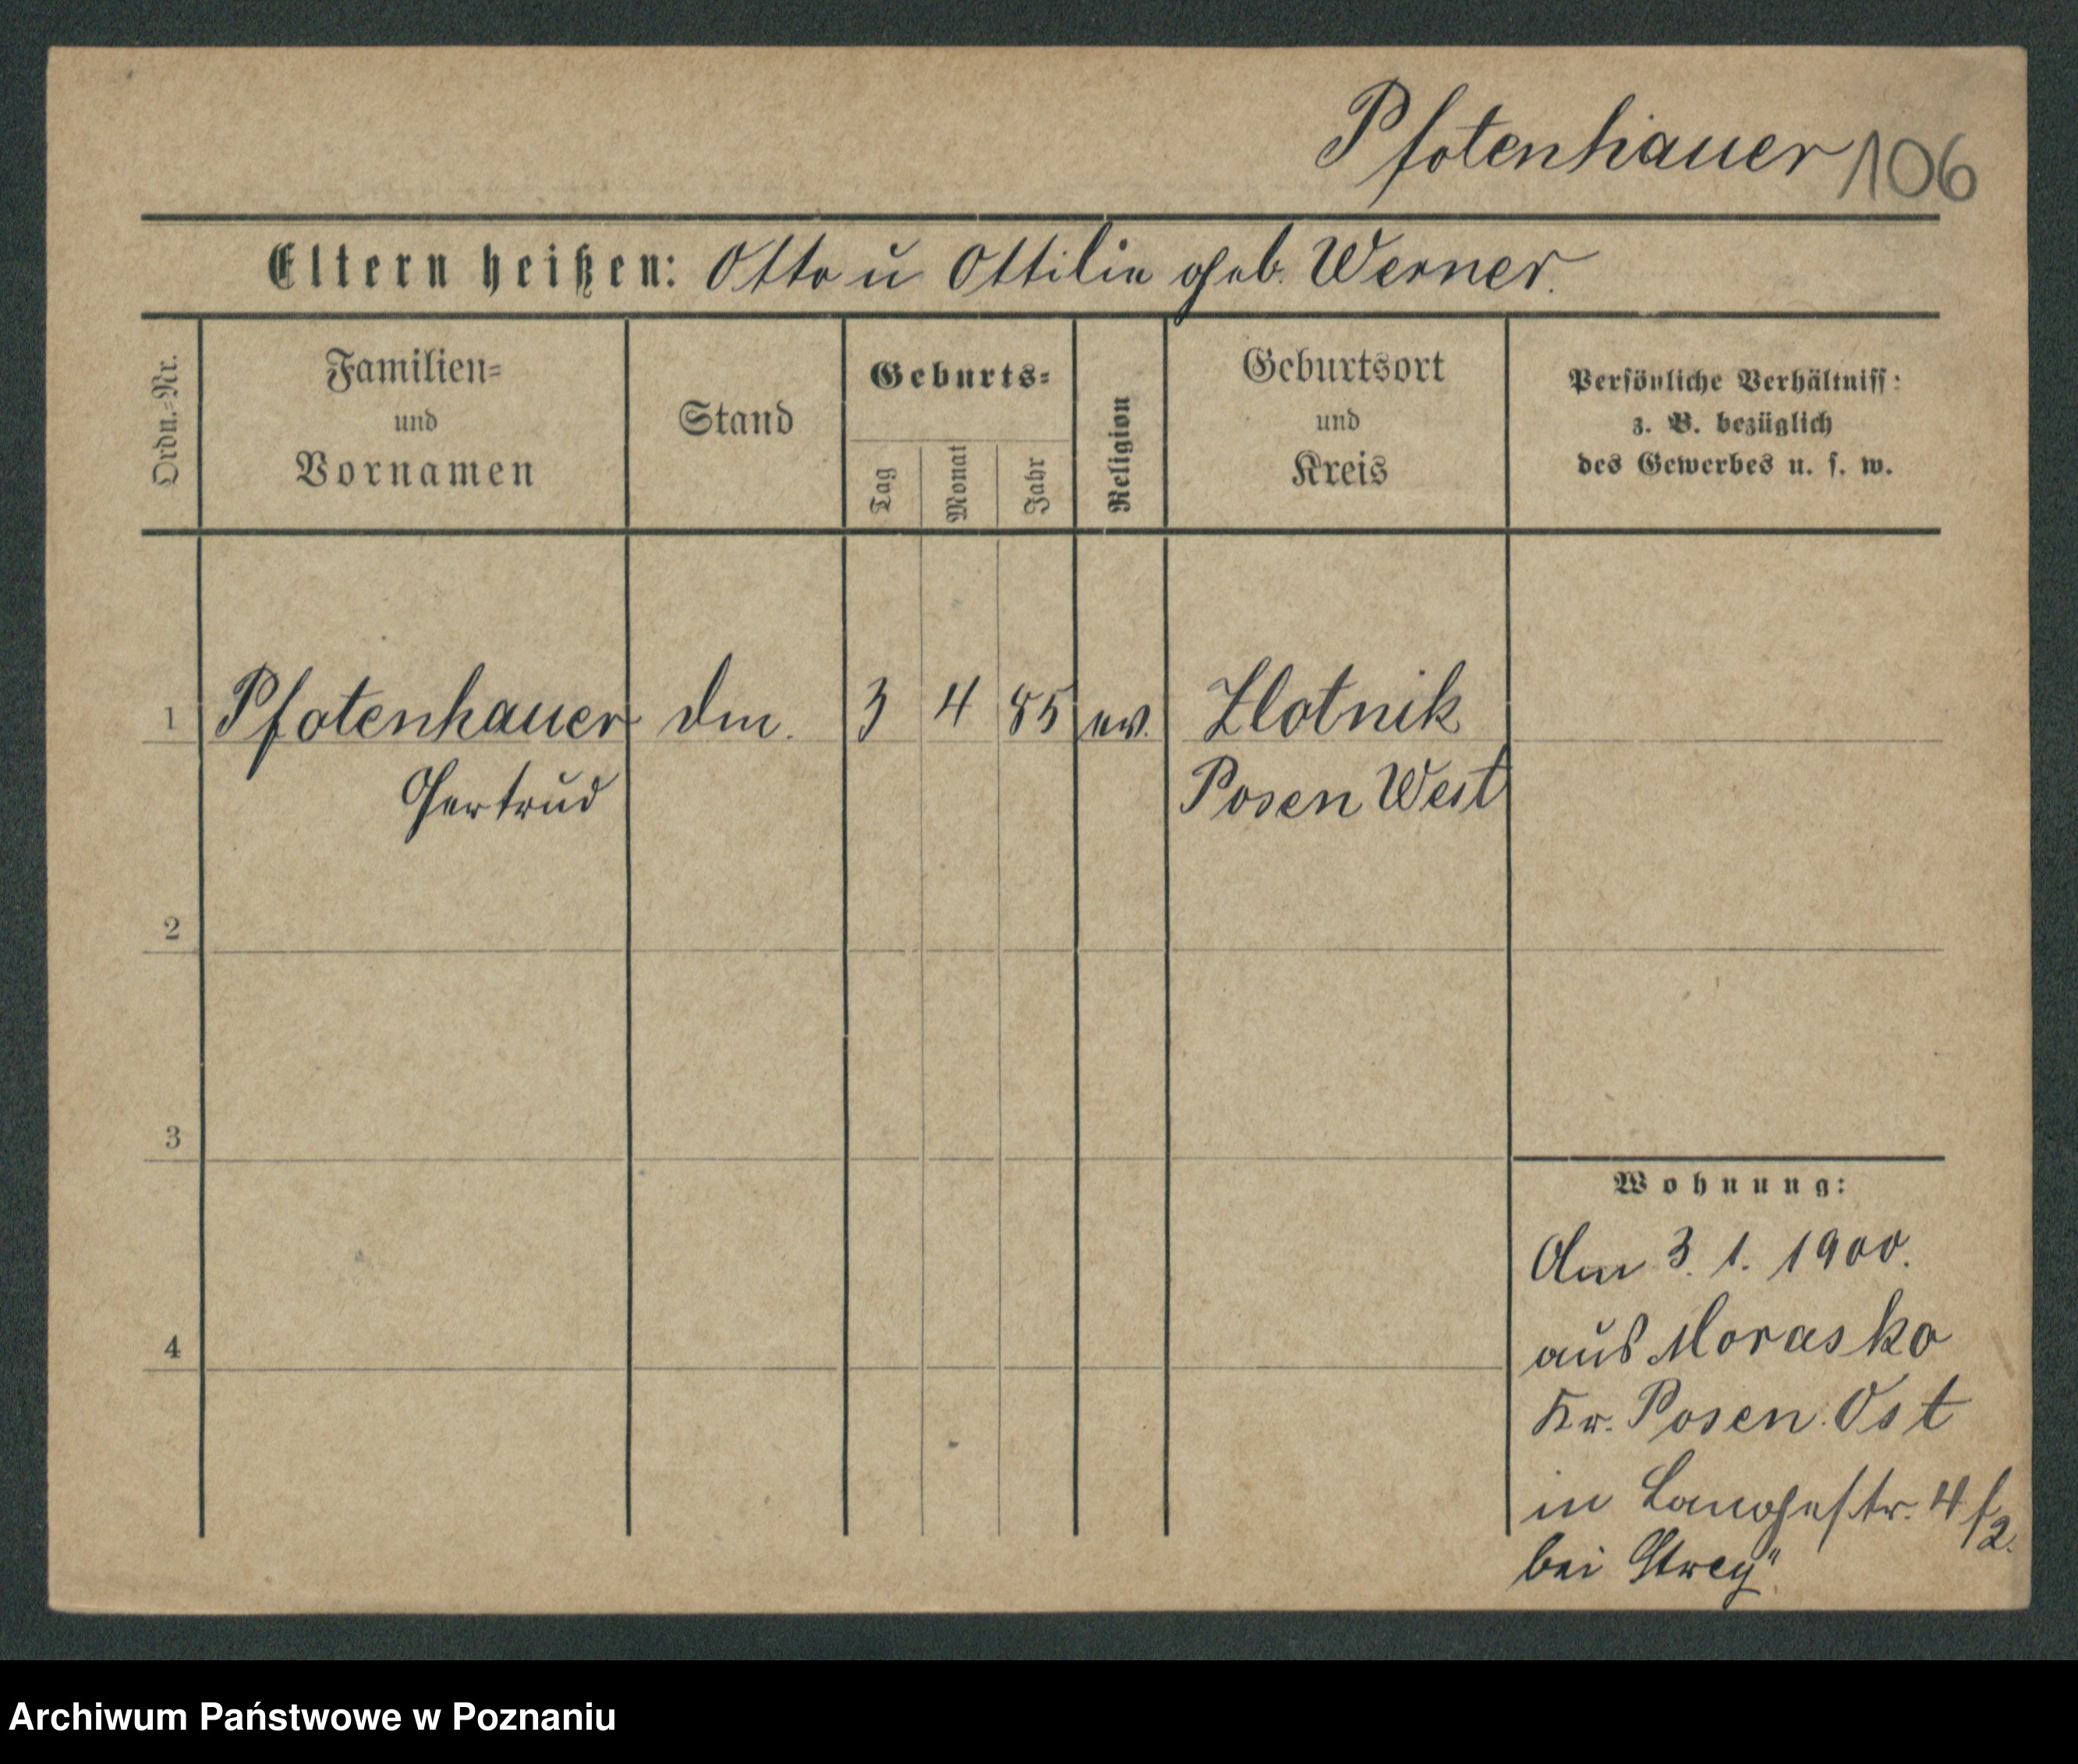 Pfotenhauer 106
Eltern heißen: Otto u Ottilie geb. Werner.
Ordn.=Nr.
Familien=
und
Vornamen
Stand
Geburts=
Tag
Monat
Jahr
Religion
Geburtsort
und
Kreis
Persönliche Verhältniss:
z. B. bezüglich
des Gewerbes u. s. w.
1 Pfotenhauer dm. 3 4 85 ev. Zlotnik
Gertrud Posen West
2
3
4
Wohnung:
Am 3. 1. 1900.
aus Morasko
Kr. Posen Ost
in Langestr. 4/2.
bei Strey"
Archiwum Państwowe w Poznaniu